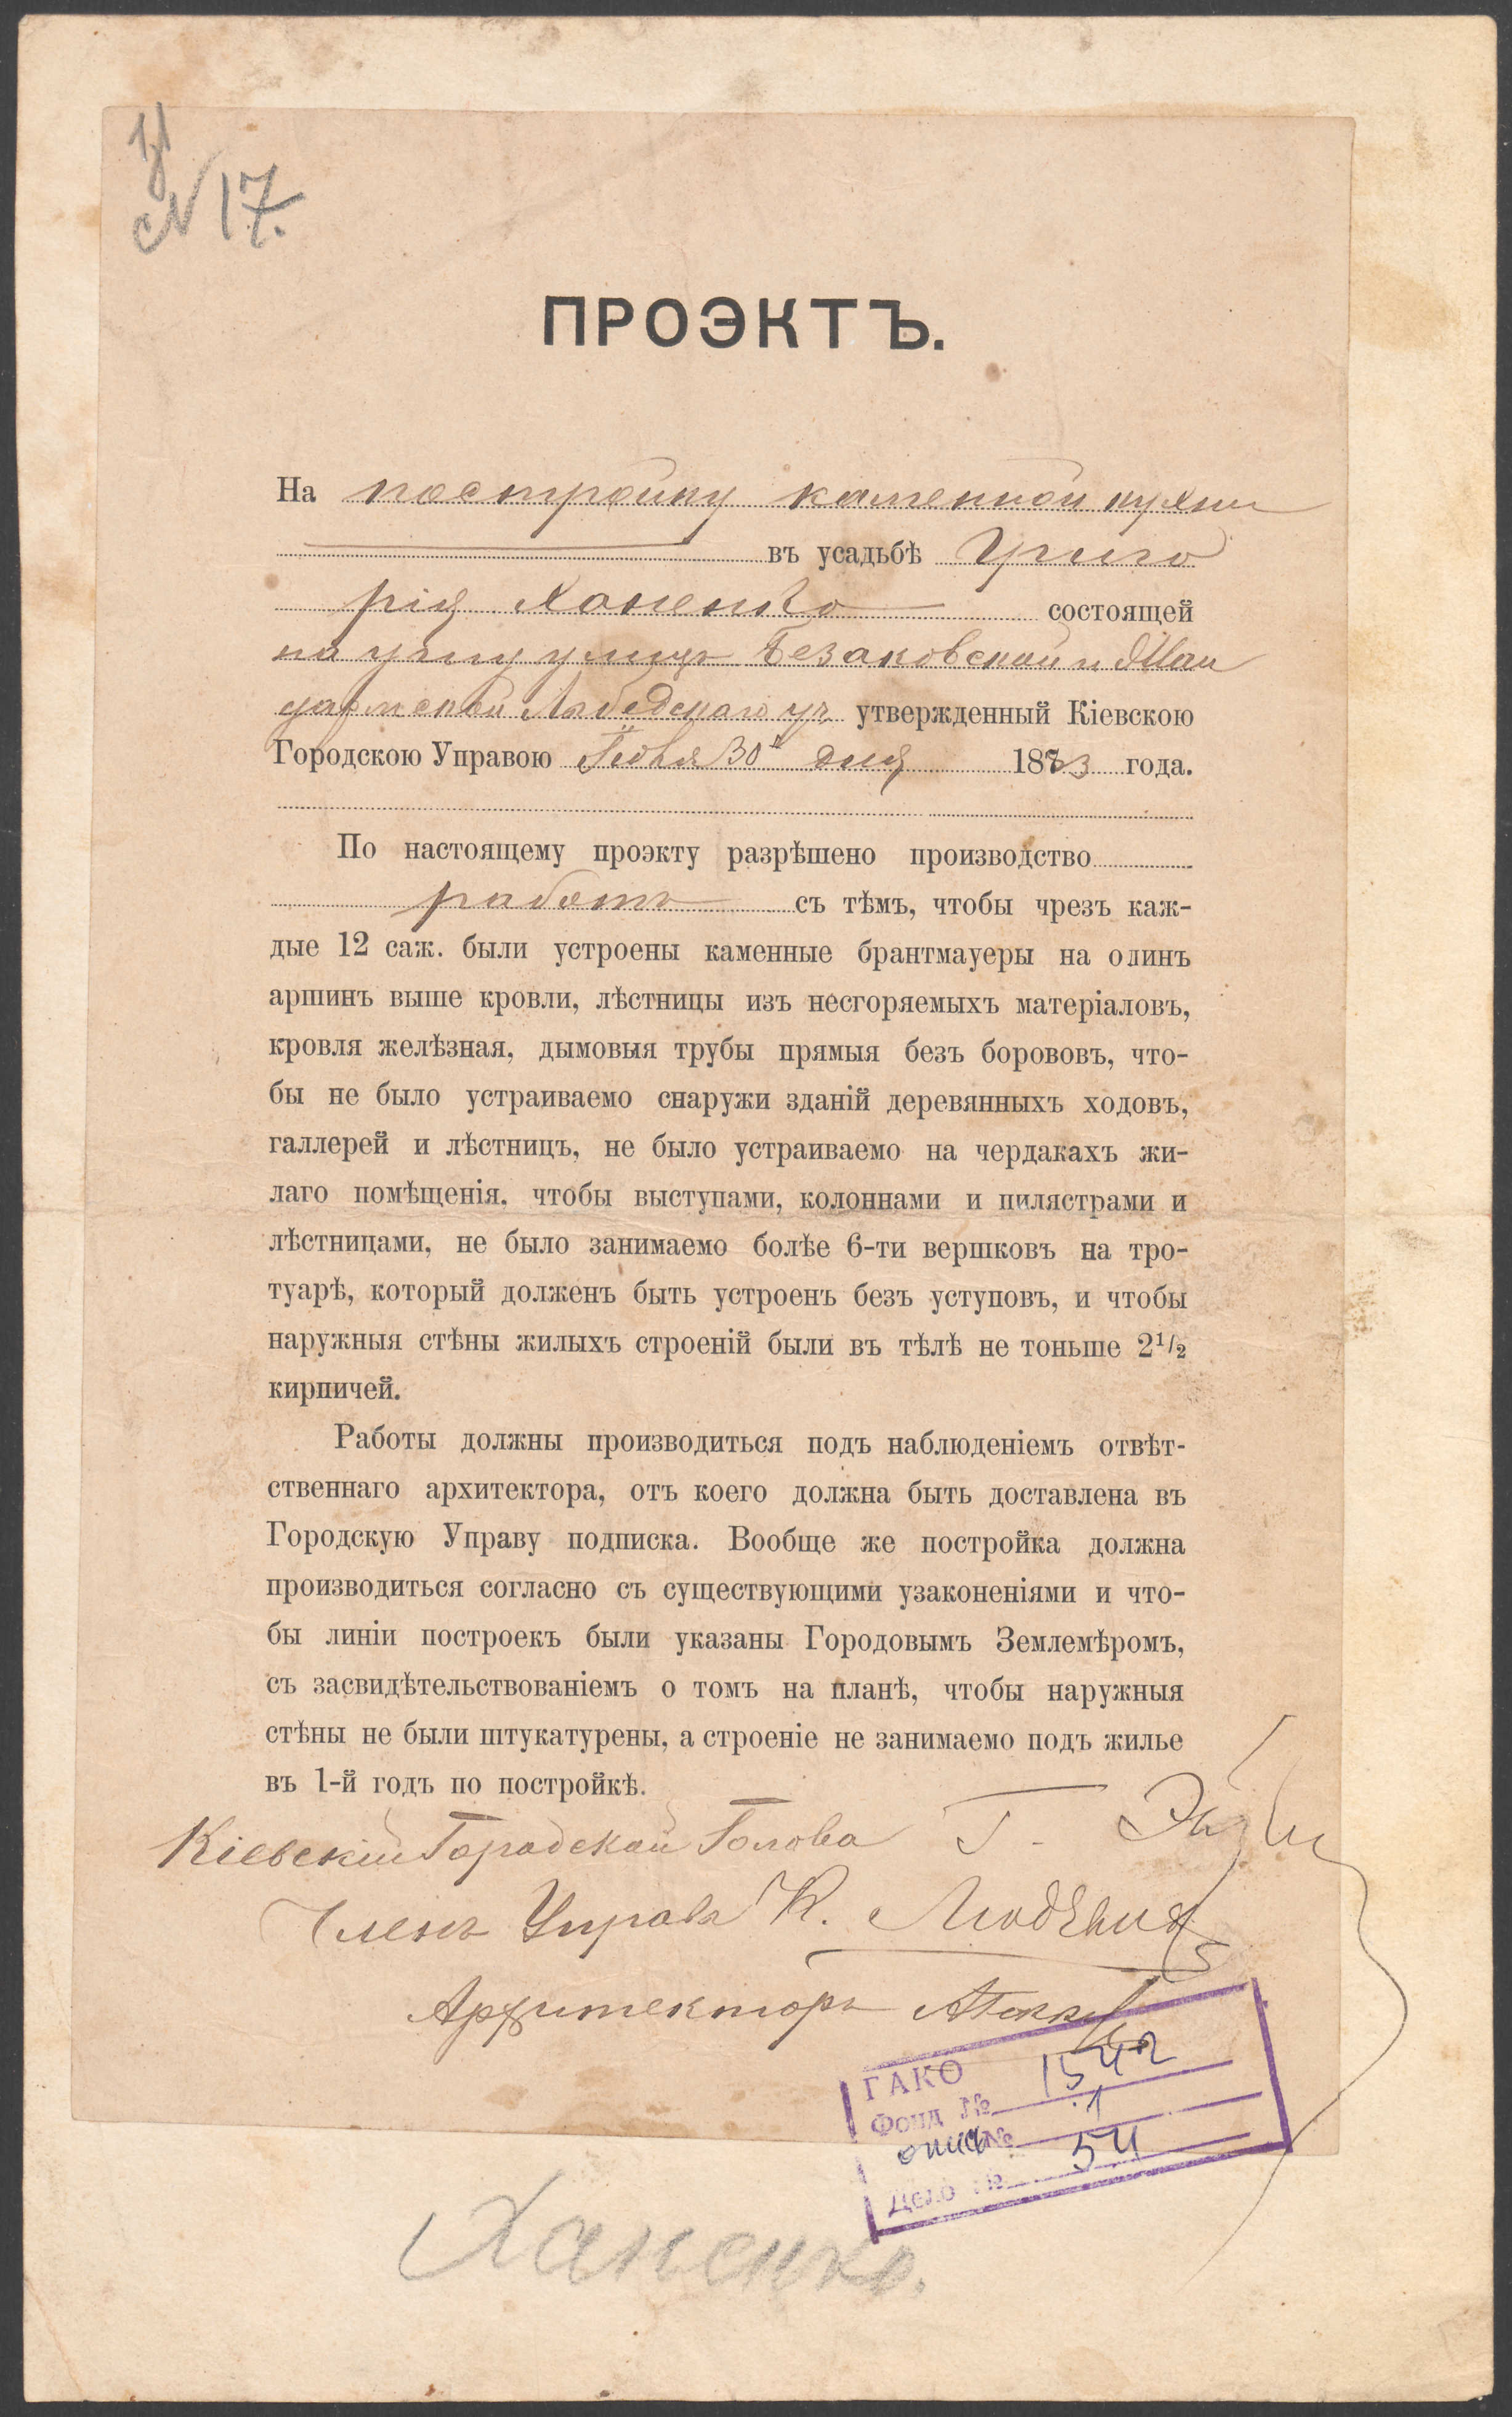 № 17.
ПРОЭКТЪ.
На постройку каменной кухни
въ усадьбѣ Григо
рія Ханенко состоящей
на углу улицъ Безаковской и Жан
дармской Лыбедскаго уч утвержденный Кіевскою
Городскою Управою 30 дня 1883 года.
По настоящему проэкту разрѣшено производство
работъ съ тѣмъ, чтобы чрезъ каж-
дые 12 саж. были устроены каменные брантмауеры на одинъ
аршинъ выше кровли, лѣстницы изъ несгоряемыхъ матеріаловъ,
кровля желѣзная, дымовыя трубы прямыя безъ борововъ, что-
бы не было устраиваемо снаружи зданій деревянныхъ ходовъ,
галлерей и лѣстницъ, не было устраиваемо на чердакахъ жи-
лаго помѣщенія, чтобы выступами, колоннами и пилястрами и
лѣстницами, не было занимаемо болѣе 6-ти вершковъ на тро-
туарѣ, который долженъ быть устроенъ безъ уступовъ, и чтобы
наружныя стѣны жилыхъ строеній были въ тѣлѣ не тоньше 2¹/₂
кирпичей.
Работы должны производиться подъ наблюденіемъ отвѣт-
ственнаго архитектора, отъ коего должна быть доставлена въ
Городскую Управу подписка. Вообще же постройка должна
производиться согласно съ существующими узаконеніями и что-
бы линіи построекъ были указаны Городовымъ Землемѣромъ,
съ засвидѣтельствованіемъ о томъ на планѣ, чтобы наружныя
стѣны не были штукатурены, а строеніе не занимаемо подъ жилье
въ 1-й годъ по постройкѣ.
Кіевскій Городской Голова Г.
Членъ Управы К.
Архитекторъ
ГАКО
Фонд № 1542
опись № 1
Дело № 54
Ханенко.